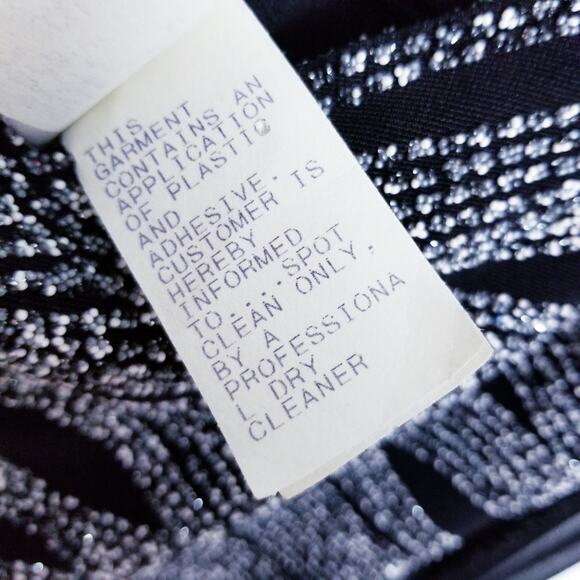 THIS
GARMENT
CONTAINS AN
APPLICATION
OF PLASTIC
AND
ADHESIVE.
CUSTOMER IS
HEREBY
INFORMED
TO....SPOT
CLEAN ONLY.
BY A
PROFESSIONA
L DRY
CLEANER